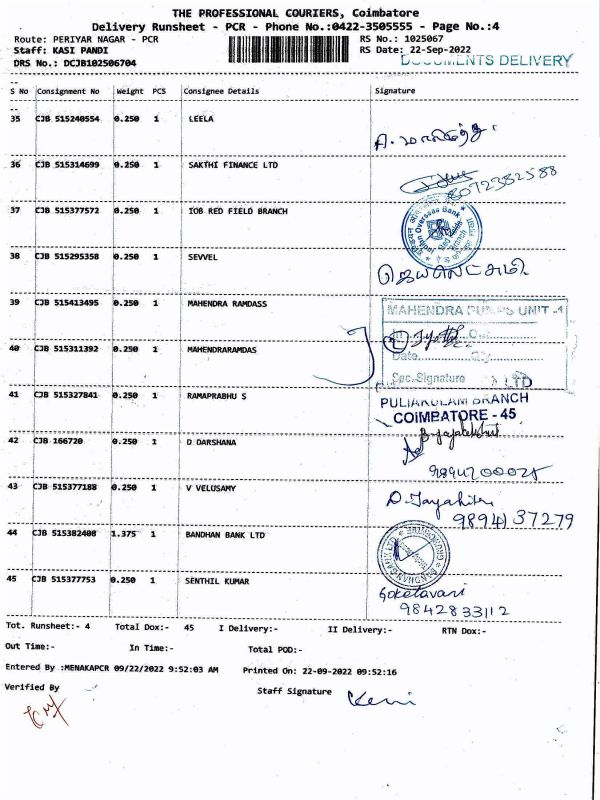 THE PROFESSIONAL COURIERS, Coimbatore
Delivery Runsheet - PCR - Phone No.:0422-3505555 - Page No.:4
Route: PERIYAR NAGAR - PCR
RS No.: 1025067
Staff: KASI PANDI
RS Date: 22-Sep-2022
DRS No.: DCJB102506704
DOCUMENTS DELIVERY
S No Consignment No Weight PCS Consignee Details Signature
35 CJB 515240554 0.250 1 LEELA
36 CJB 515314699 0.250 1 SAKTHI FINANCE LTD
8072382588
37 CJB 515377572 0.250 1 IOB RED FIELD BRANCH
Indian Overseas Bank
38 CJB 515295358 0.250 1 SEVVEL
ஜெயலட்சுமி
39 CJB 515413495 0.250 1 MAHENDRA RAMDASS
MAHENDRA PUMPS UNIT -1
40 CJB 515311392 0.250 1 MAHENDRARAMDAS
Jyothi
Date
Sec.Signature
LTD
41 CJB 515327841 0.250 1 RAMAPRABHU S
PULIAKULAM BRANCH
COIMBATORE - 45
42 CJB 166720 0.250 1 D DARSHANA
43 CJB 515377188 0.250 1 V VELUSAMY
98941 37279
44 CJB 515382408 1.375 1 BANDHAN BANK LTD
BANDHAN BANK LTD
45 CJB 515377753 0.250 1 SENTHIL KUMAR
9842833112
Tot. Runsheet:- 4 Total Dox:- 45 I Delivery:- II Delivery:- RTN Dox:-
Out Time:- In Time:- Total POD:-
Entered By :MENAKAPCR 09/22/2022 9:52:03 AM Printed On: 22-09-2022 09:52:16
Verified By
Staff Signature